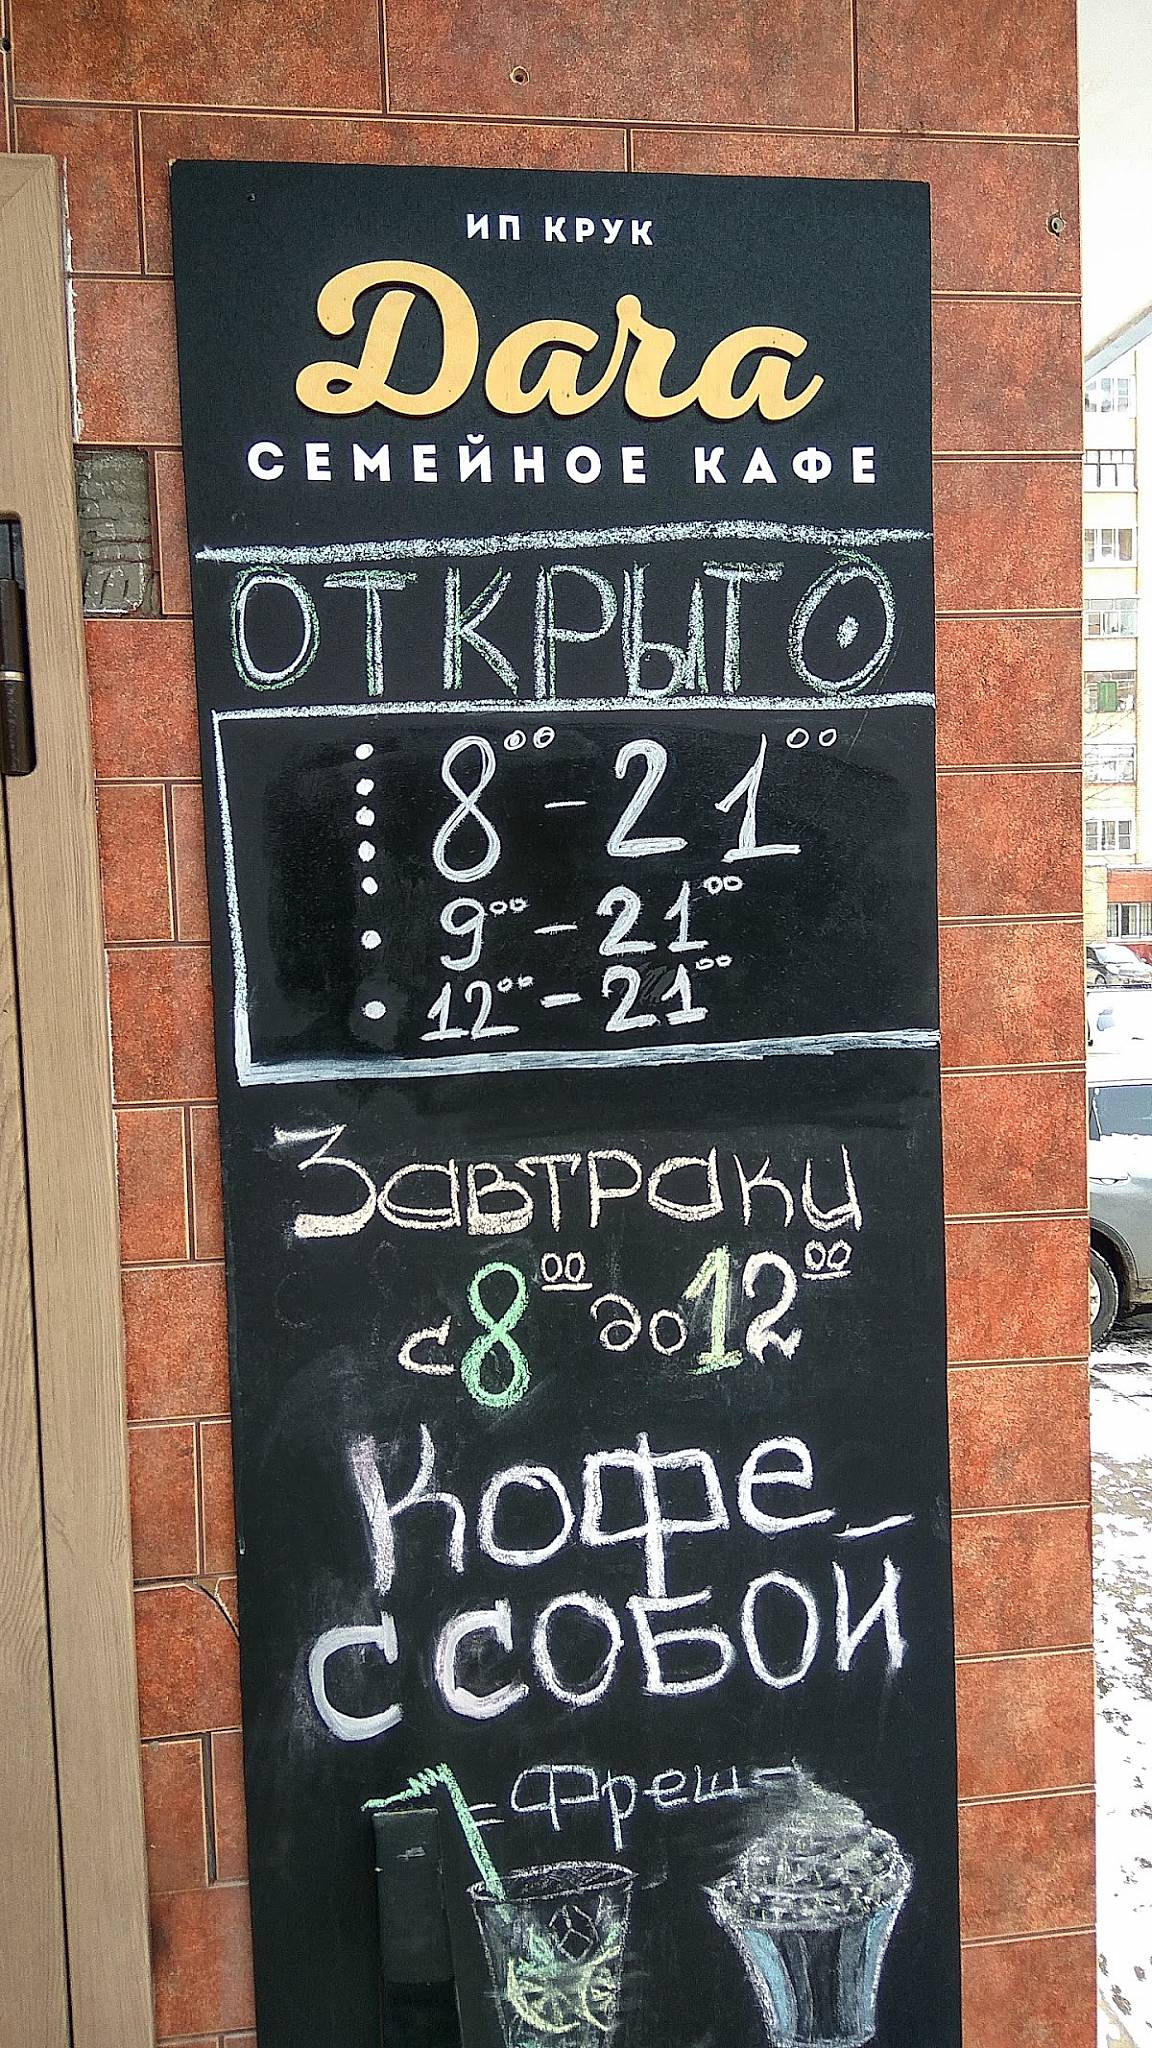 ИП КРУК
Дача
СЕМЕЙНОЕ КАФЕ
ОТКРЫТО
8⁰⁰ - 21⁰⁰
9⁰⁰ - 21⁰⁰
12⁰⁰ - 21⁰⁰
Завтраки
с 8⁰⁰ до 12⁰⁰
Кофе
с собой
Фреш